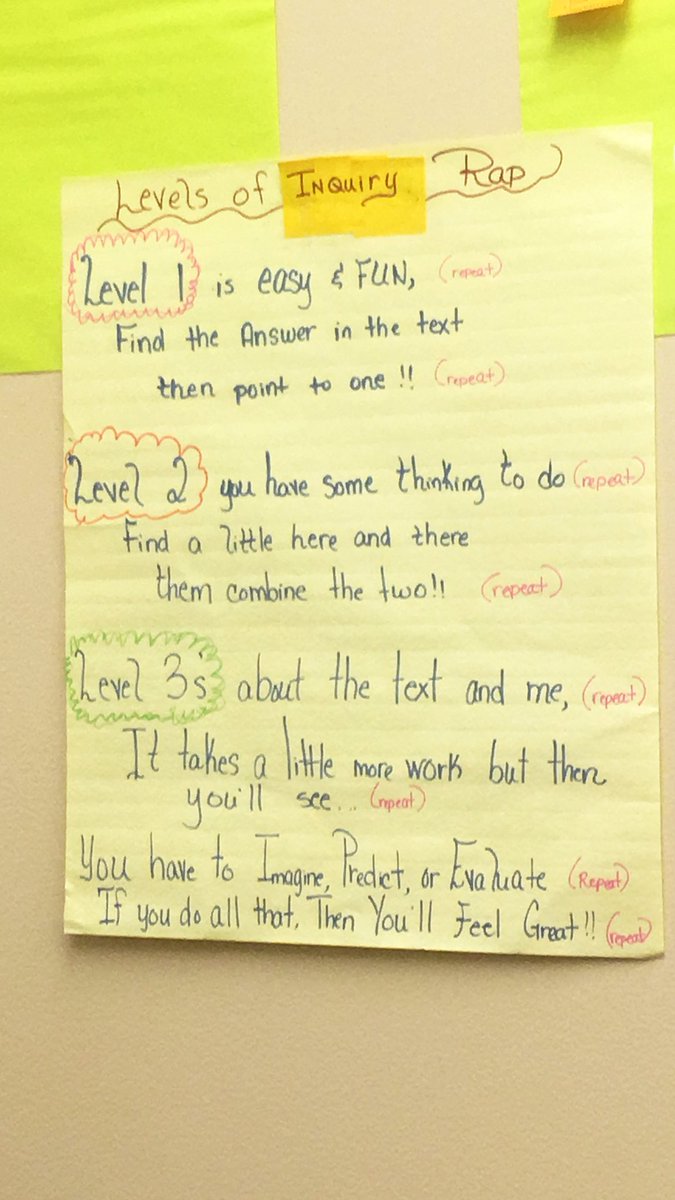 Levels of INQUIRY Rap
Level 1 is easy & FUN, (repeat)
Find the Answer in the text
then point to one !! (repeat)
Level 2 you have some thinking to do (repeat)
Find a little here and there
them combine the two!! (repeat)
Level 3's about the text and me, (repeat)
It takes a little more work but then
you'll see... (repeat)
You have to Imagine, Predict, or Evaluate (Repeat)
If you do all that, Then You'll Feel Great!! (repeat)